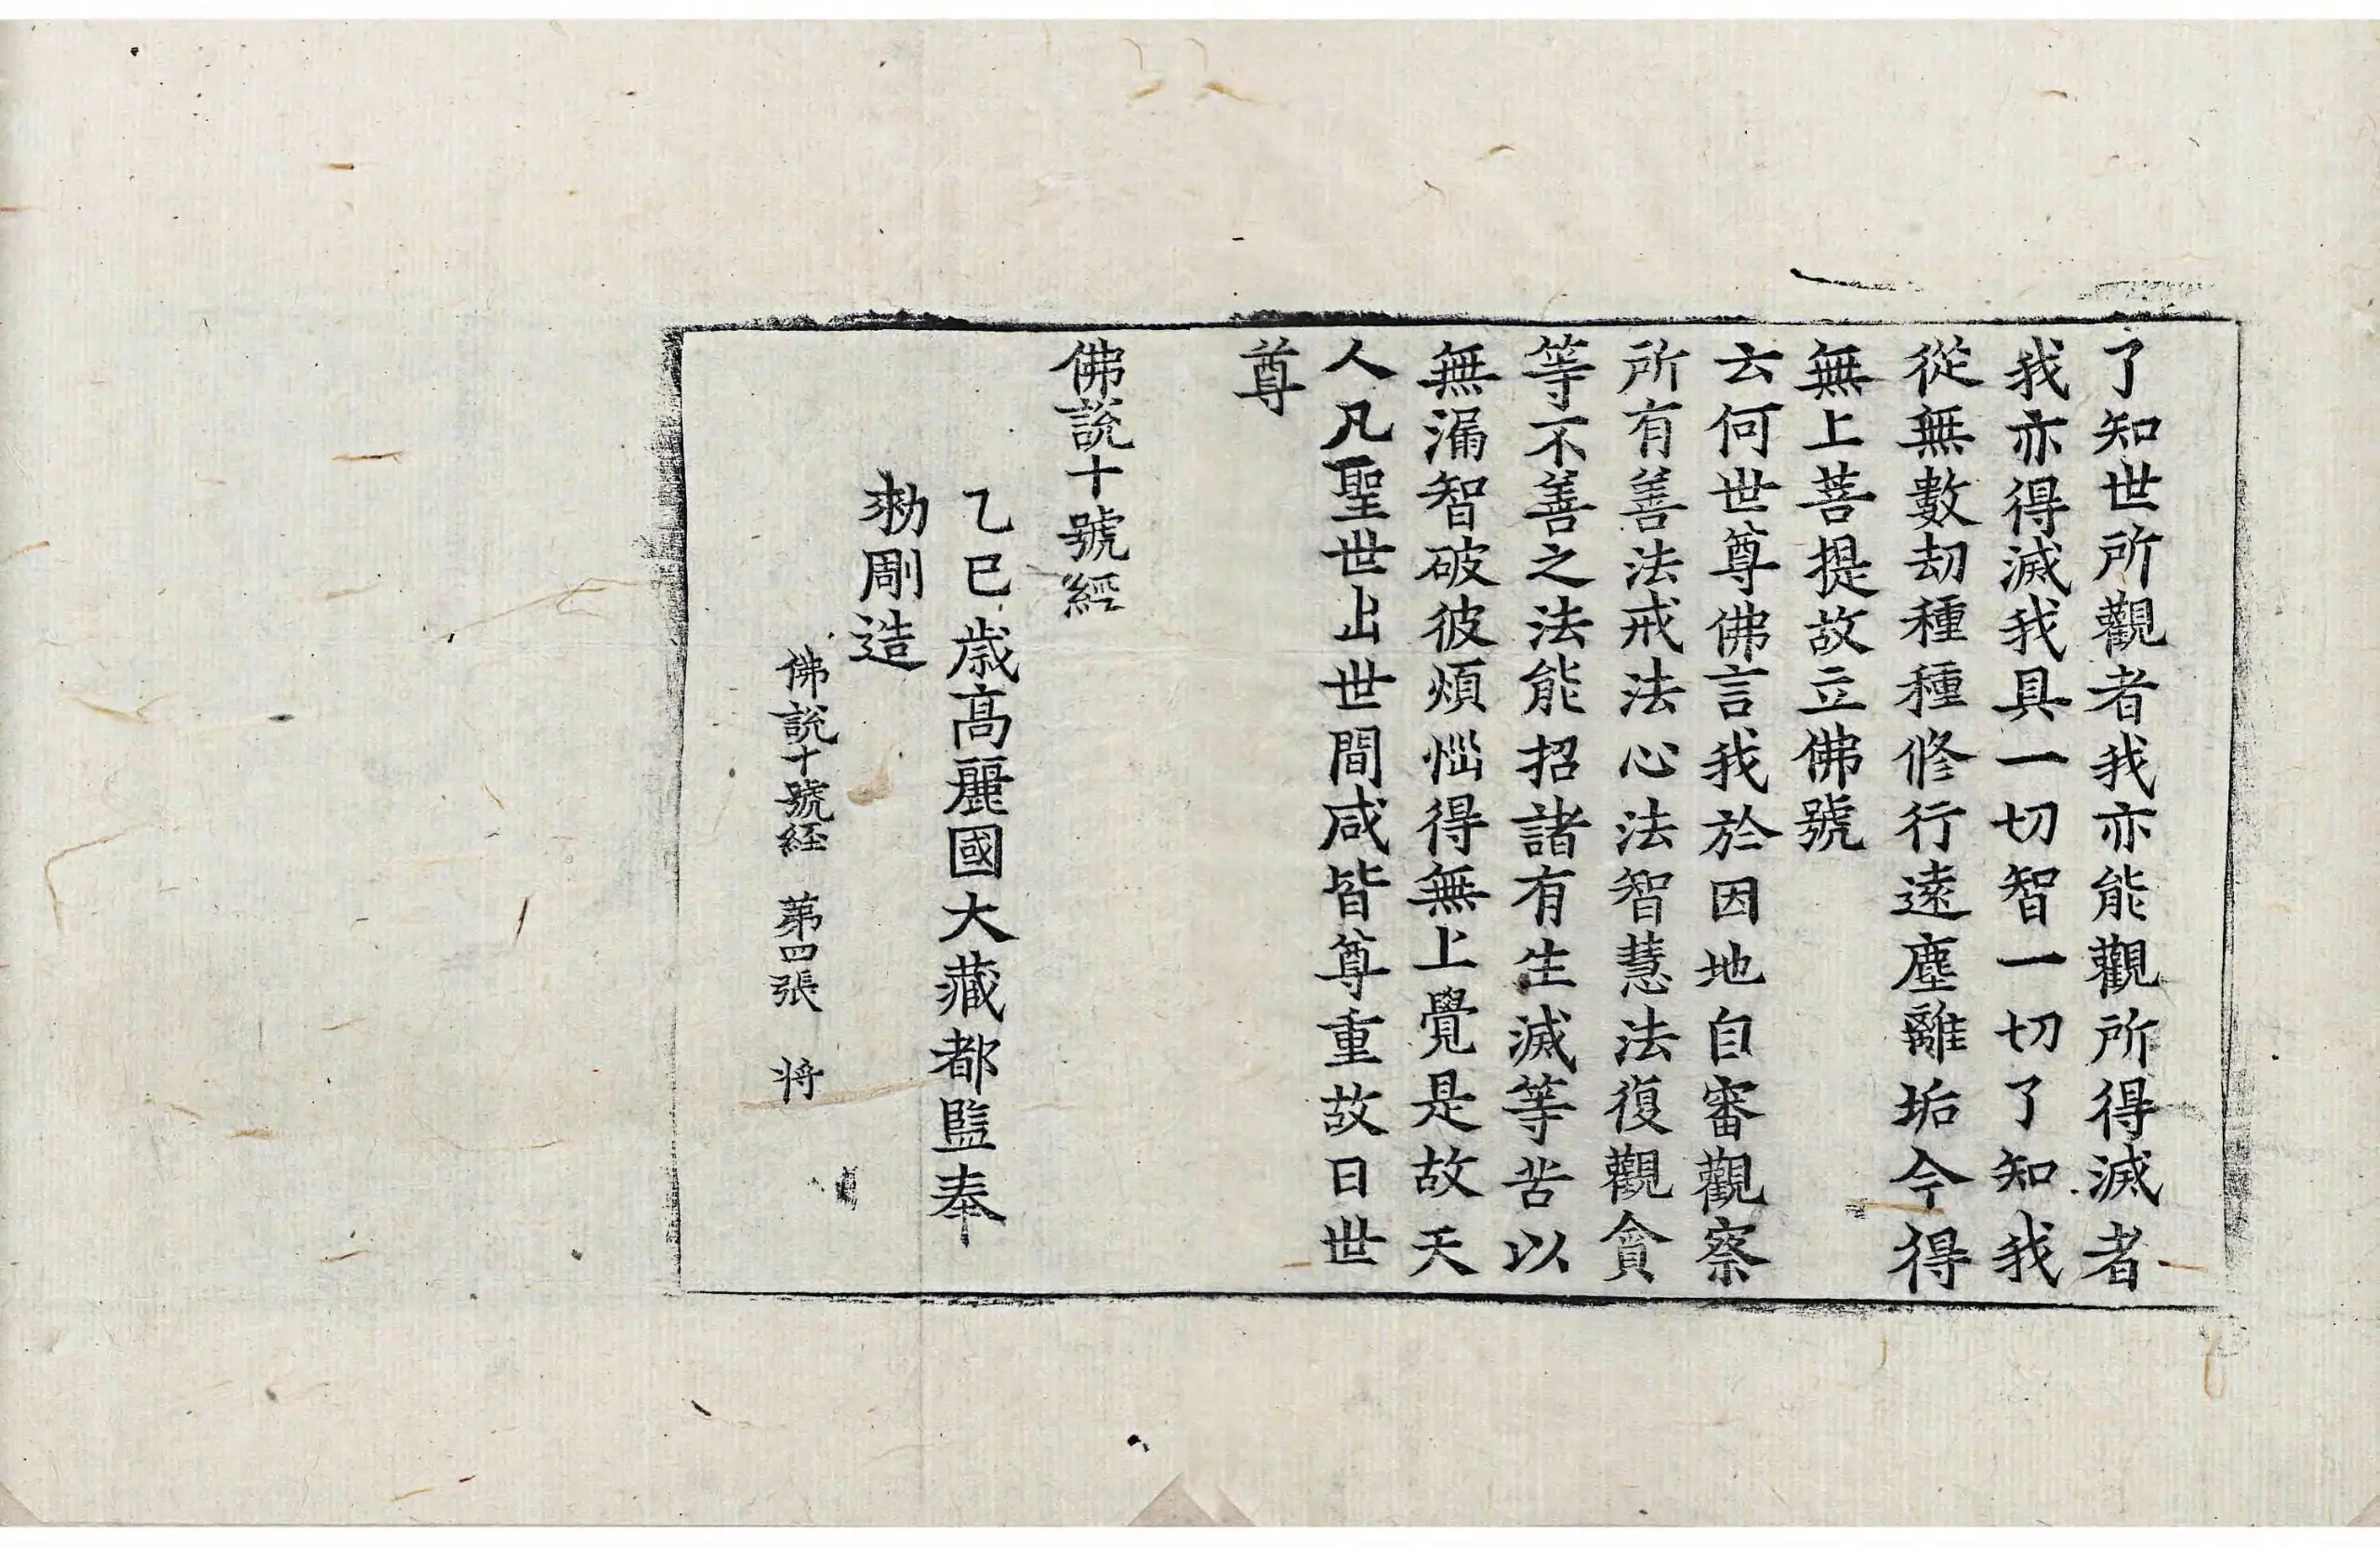 了知世所觀者我亦能觀所得滅者
我亦得滅我具一切智一切了知我
從無數劫種種修行遠塵離垢今得
無上菩提故立佛號
云何世尊佛言我於因地自審觀察
所有善法戒法心法智慧法復觀貪
等不善之法能招諸有生滅等苦以
無漏智破彼煩惱得無上覺是故天
人凡聖世出世間咸皆尊重故曰世
尊
佛說十號經
乙巳歲高麗國大藏都監奉
勅彫造
佛說十號経 第四張 将